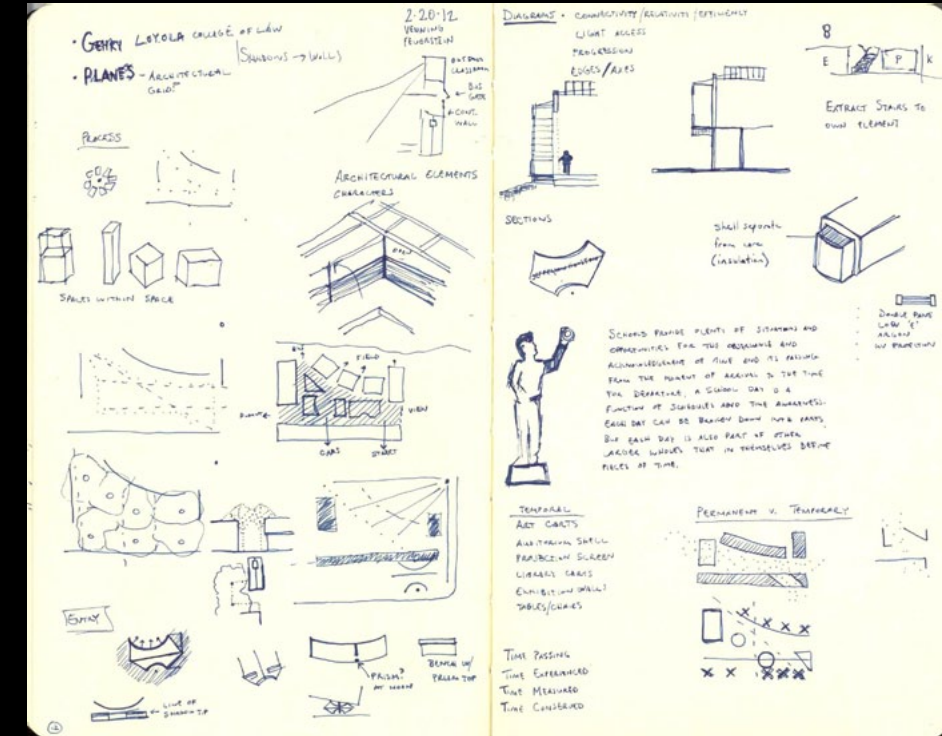 2-20-12
VENNING
FEUERSTEIN
• GEHRY LOYOLA COLLEGE OF LAW
(SHADOWS → WALL)
• PLANES - ARCHITECTURAL
GRID?
OUTDOOR
CLASSROOM
BUS
GATE
CONT.
WALL
PROCESS
ARCHITECTURAL ELEMENTS
CHARACTERS
OPEN
SPACES WITHIN SPACE
FIELD
VIEW
CARS
START
ENTRY
PRISM?
AT NOON
BENCH W/
PRISM TOP
LINE OF
DIAGRAMS • CONNECTIVITY/RELATIVITY/EFFICIENCY
LIGHT ACCESS
PROGRESSION
EDGES/AXES
8
E
P
K
EXTRACT STAIRS TO
OWN ELEMENT
SECTIONS
shell separate
from core
(insulation)
DOUBLE PANE
LOW 'E'
ARGON
UV PROTECTION
SCHOOLS PROVIDE PLENTY OF SITUATIONS AND
OPPORTUNITIES FOR THE OBSERVANCE AND
ACKNOWLEDGEMENT OF TIME AND ITS PASSING
FROM THE MOMENT OF ARRIVAL TO THE TIME
FOR DEPARTURE, A SCHOOL DAY IS A
FUNCTION OF SCHEDULES AND TIME AWARENESS.
EACH DAY CAN BE BROKEN DOWN INTO PARTS
BUT EACH DAY IS ALSO PART OF OTHER
LARGER WHOLES THAT IN THEMSELVES DEFINE
PIECES OF TIME.
TEMPORAL
ART CARTS
AUDITORIUM SHELL
PROJECTION SCREEN
LIBRARY CARTS
EXHIBITION WALL?
TABLES/CHAIRS
PERMANENT V. TEMPORARY
TIME PASSING
TIME EXPERIENCED
TIME MEASURED
TIME CONSERVED